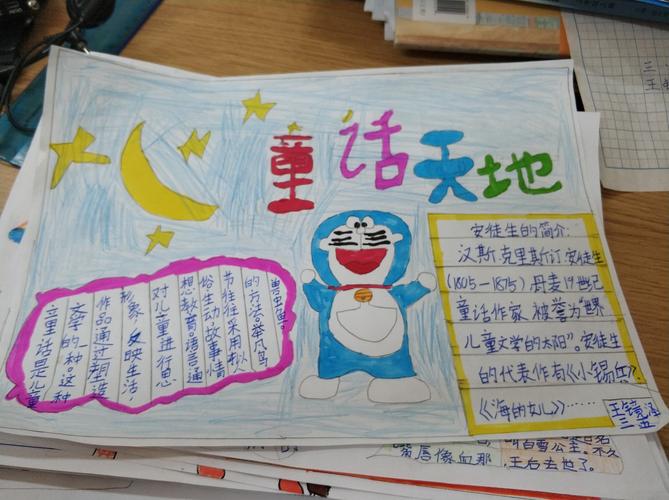 童话天地
童话是儿童
文学的一种。这种
作品通过塑造
形象,反映生活,
对儿童进行思
想教育。语言通
俗生动故事情
节往往采用拟人
的方法。举凡鸟
兽虫鱼。
安徒生的简介:
汉斯.克里斯汀.安徒生
(1805—1875)丹麦19世纪
童话作家,被誉为"世界
儿童文学的太阳"。安徒生
的代表作有《小锡兵》.
《海的女儿》……
三五
唇像血那
叫白雪公主。不久
王后去世了。